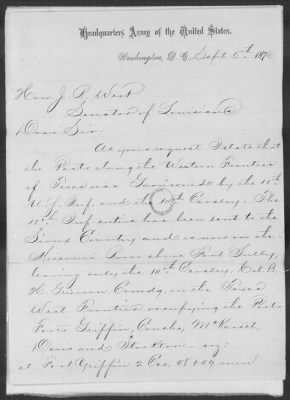 Headquarters Army of the United States,
Washington, D. C. Sept 5th 1876
Hon. J. R. West
Senator of Louisiana
Dear Sir:
As you request I state that
the Posts along the Western Frontier
of Texas was Garrisoned by the 11th
U.S. Inf. and the 10th Cavalry. The
11th Infantry has been sent to the
Sioux Country and is now on the
Missouri River above Fort Sully,
leaving only the 10th Cavalry, Col. B.
H. Grierson Comdg, on the Texas
West Frontier occupying the Posts
Forts Griffin, Concho, McKavett,
Davis and Stockton
at Fort Griffin 2 Cos. of 109 men